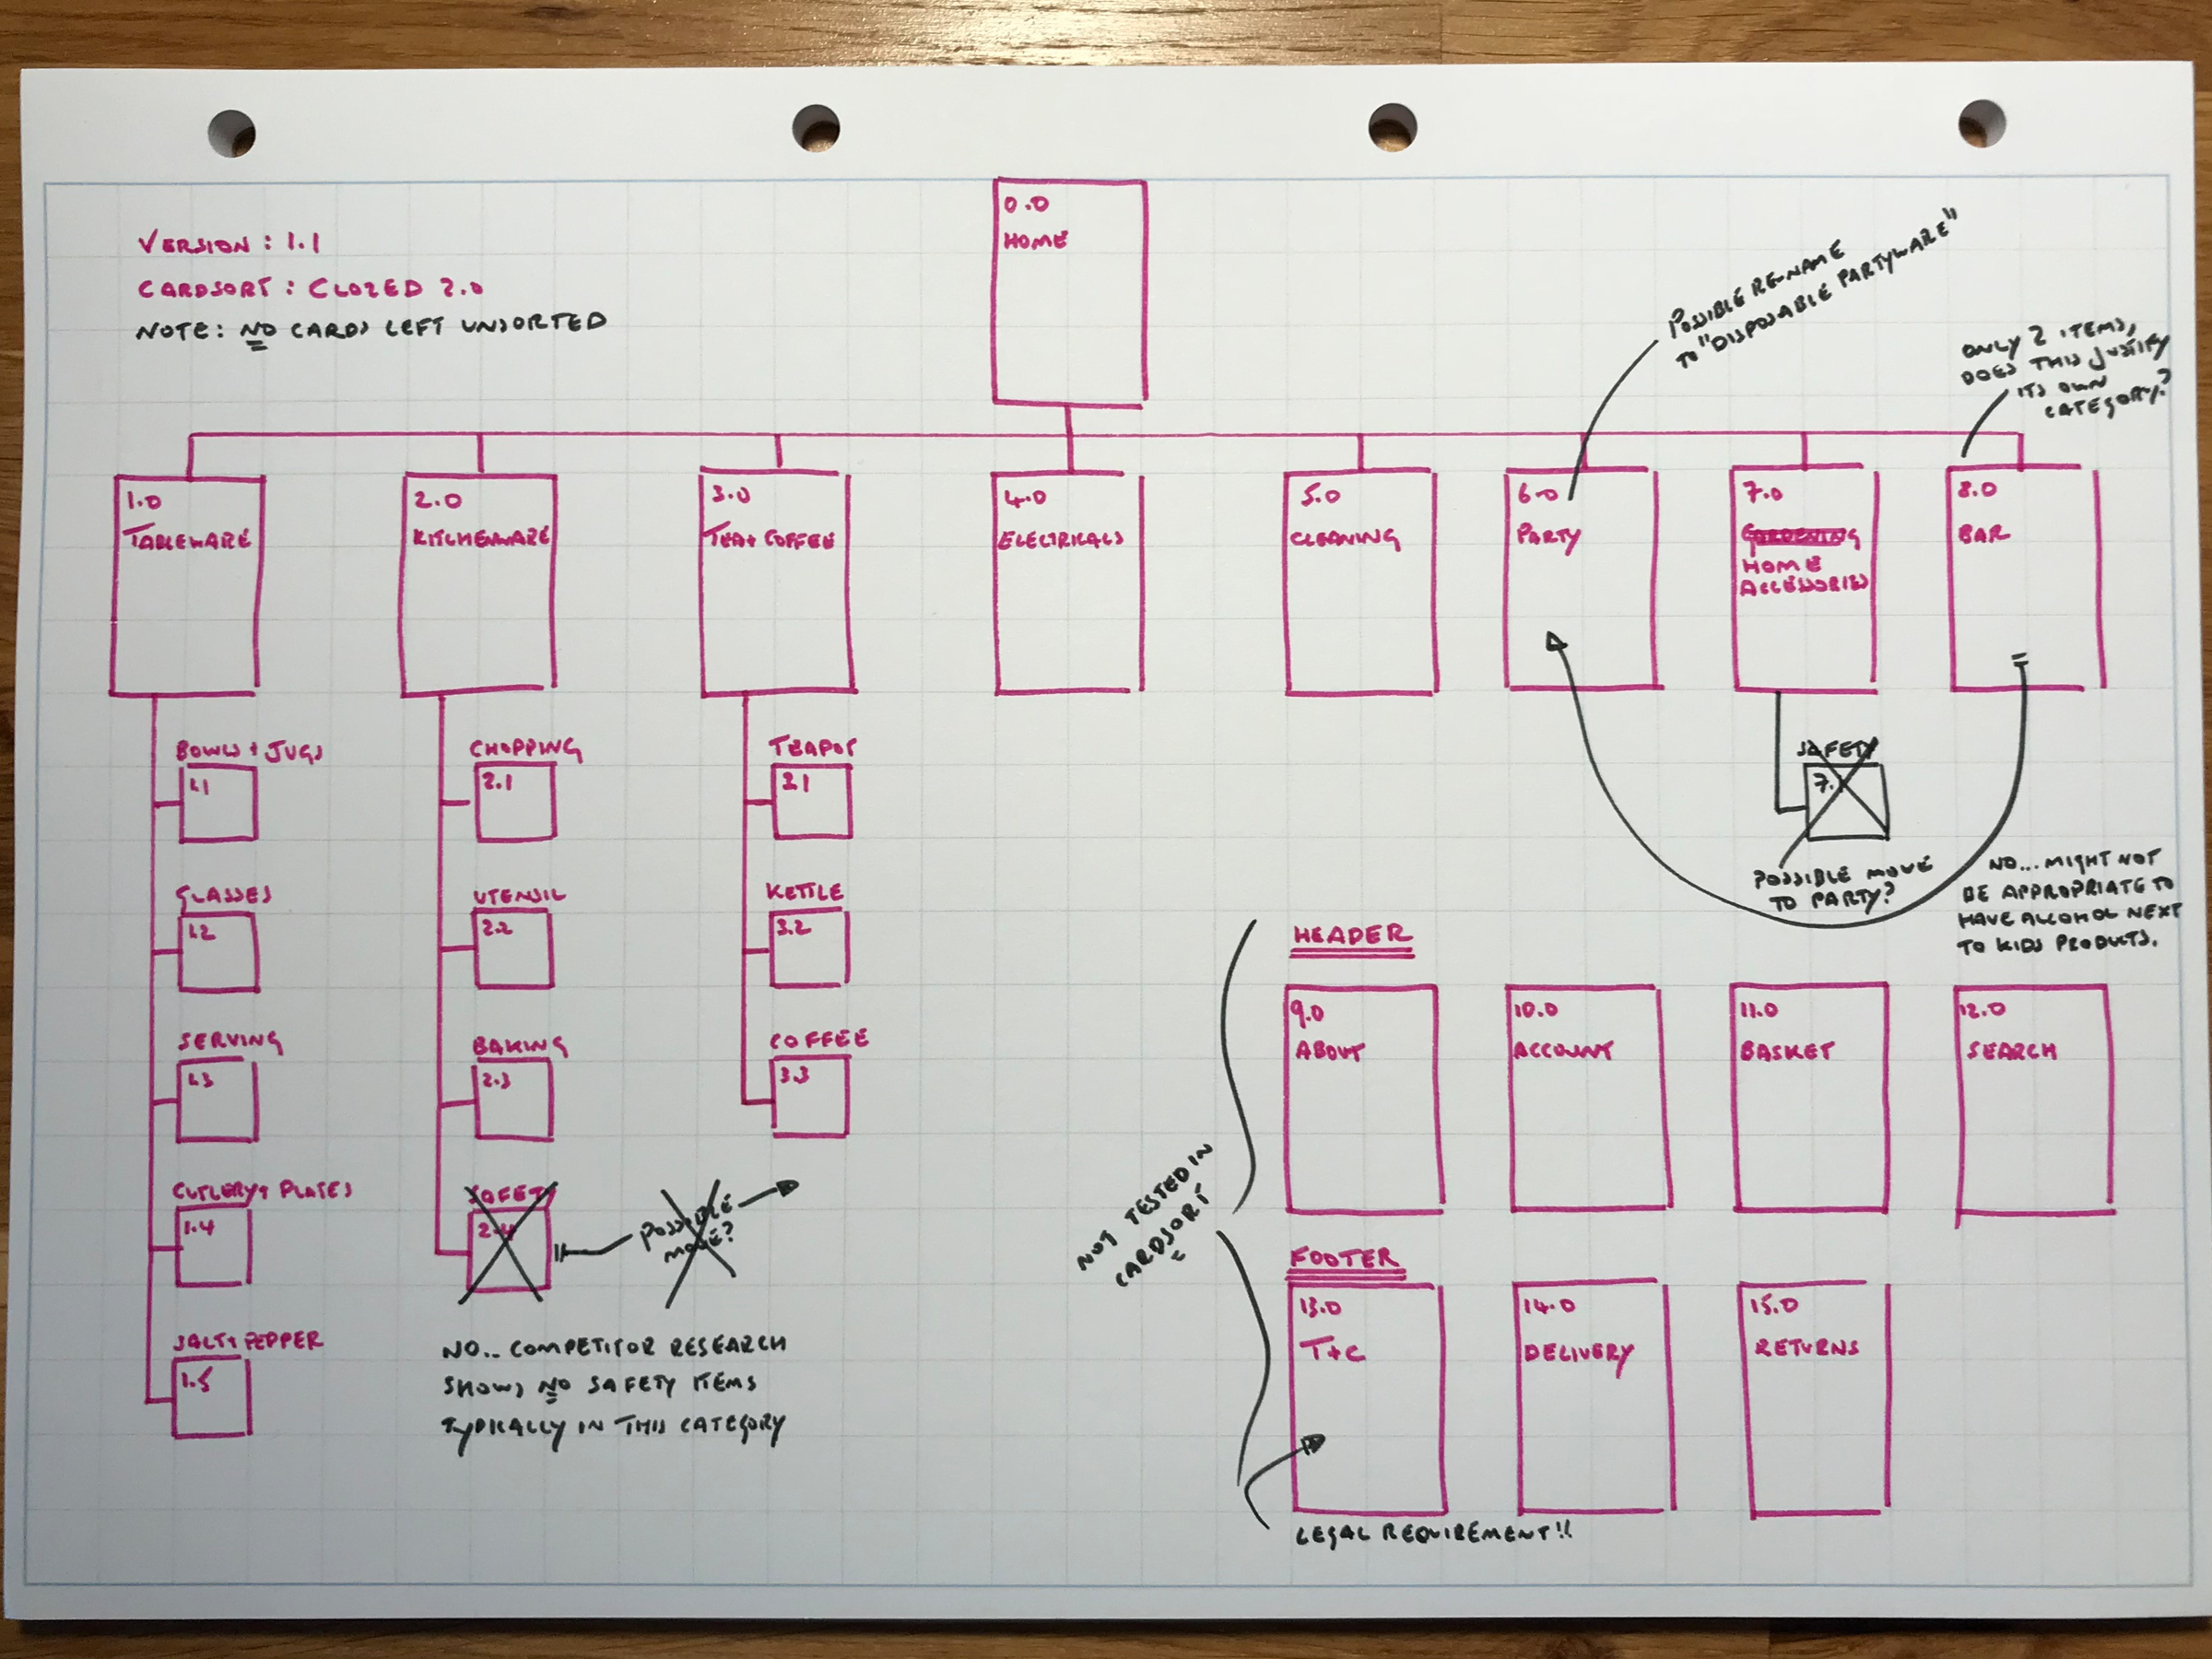 VERSION: 1.1
CARDSORT: CLOSED 2.0
NOTE: NO CARDS LEFT UNSORTED
0.0
HOME
POSSIBLE RE-NAME
TO "DISPOSABLE PARTYWARE"
ONLY 2 ITEMS,
DOES THIS JUSTIFY
ITS OWN
CATEGORY?
1.0
TABLEWARE
2.0
KITCHENWARE
3.0
TEA + COFFEE
4.0
ELECTRICALS
5.0
CLEANING
6.0
PARTY
7.0
GARDENING
HOME
ACCESSORIES
8.0
BAR
BOWLS + JUGS
1.1
GLASSES
1.2
SERVING
1.3
CUTLERY + PLATES
1.4
SALT + PEPPER
1.5
CHOPPING
2.1
UTENSIL
2.2
BAKING
2.3
SAFETY
2.4
POSSIBLE
MOVE?
NO.. COMPETITOR RESEARCH
SHOWS NO SAFETY ITEMS
TYPICALLY IN THIS CATEGORY
TEAPOT
3.1
KETTLE
3.2
COFFEE
3.3
SAFETY
7.1
POSSIBLE MOVE
TO PARTY?
NO... MIGHT NOT
BE APPROPRIATE TO
HAVE ALCOHOL NEXT
TO KIDS PRODUCTS.
NOT TESTED IN
CARDSORT
HEADER
9.0
ABOUT
10.0
ACCOUNT
11.0
BASKET
12.0
SEARCH
FOOTER
13.0
T+C
14.0
DELIVERY
15.0
RETURNS
LEGAL REQUIREMENT!!